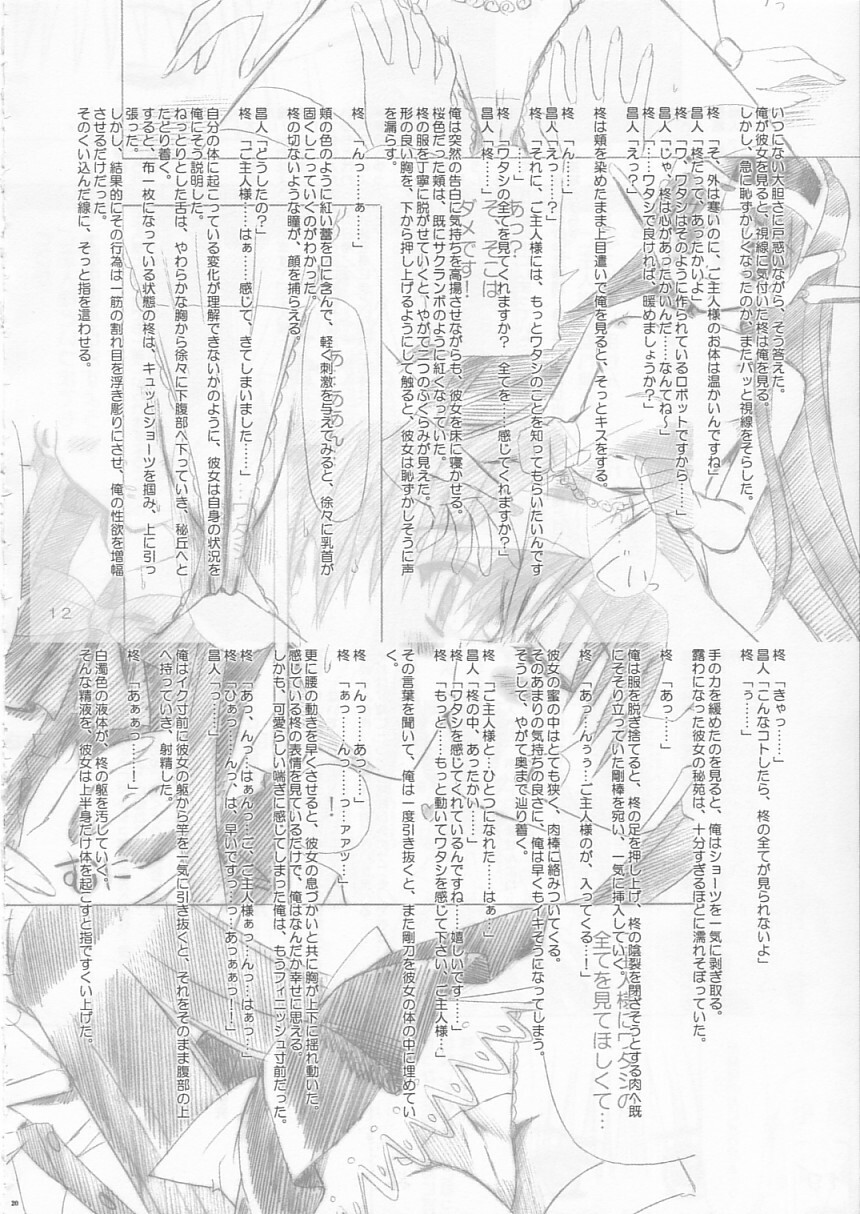 いつにない大胆さに戸惑いながら、そう答えた。
俺が彼女を見ると、視線に気付いた柊は俺を見る。
しかし、急に恥ずかしくなったのか、またパッと視線をそらした。
柊　「そ、外は寒いのに、ご主人様のお体は温かいんですね」
昌人「柊だって、あったかいよ」
柊　「ワ、ワタシはそのように作られているロボットですから……」
昌人「じゃ、柊は心があったかいんだ……なんてね～」
柊　「……ワタシで良ければ、暖めましょうか？」
昌人「えっ？」
柊は頬を染めたまま上目遣いで俺を見ると、そっとキスをする。
柊　「ん……」
昌人「えっ……？」
柊　「それに、ご主人様には、もっとワタシのことを知ってもらいたいんです……」
柊　「ワタシの全てを見てくれますか？　全てを……感じてくれますか？」
昌人「柊……」
俺は突然の告白に気持ちを高揚させながらも、彼女を床に寝かせる。
桜色だった頬は、既にサクランボのように紅くなっていた。
柊の服を丁寧に脱がせていくと、やがて二つのふくらみが見えた。
形の良い胸を、下から押し上げるようにして触ると、彼女は恥ずかしそうに声
を漏らす。
柊　「んっ……ぁっ……」
頬の色のように紅い蕾を口に含んで、軽く刺激を与えてみると、徐々に乳首が
固くしこっていくのがわかった。
柊の切ないような瞳が、顔を捕らえる。
昌人「どうしたの？」
柊　「ご主人様……はぁ……感じて、きてしまいました……」
自分の体に起こっている変化が理解できないかのように、彼女は自身の状況を
俺にそう説明した。
ねっとりとした舌は、やわらかな胸から徐々に下腹部へ下っていき、秘丘へと
たどり着く。
すると、布一枚になっている状態の柊は、キュッとショーツを掴み、上に引っ
張った。
しかし、結果的にその行為は一筋の割れ目を浮き彫りにさせ、俺の性欲を増幅
させるだけだった。
そのくい込んだ線に、そっと指を這わせる。
あっ？
そ、そこは
ダメです！
あ…ああん
…ワタシ
ぐいっ
12
柊　「きゃっ……」
昌人「こんなコトしたら、柊の全てが見られないよ」
柊　「ぅ……」
手の力を緩めたのを見ると、俺はショーツを一気に剥ぎ取る。
露わになった彼女の秘苑は、十分すぎるほどに濡れそぼっていた。
柊　「あっ……」
俺は服を脱ぎ捨てると、柊の足を押し上げ、柊の陰裂を閉ざそうとする肉へ既
にそそり立っていた剛棒を宛い、一気に挿入していく。
柊　「あっ……んぅぅ……ご主人様のが、入ってくる……！」
彼女の蜜の中はとても狭く、肉棒に絡みついてくる。
そのあまりの気持ちの良さに、俺は早くもイキそうになってしまう。
そうして、やがて奥まで辿り着く。
柊　「ご主人様と…ひとつになれた……はぁ…」
昌人「柊の中、あったかい……」
柊　「ワタシを感じてくれているんですね……嬉しいです……」
柊　「もっと……もっと動いてワタシを感じて下さい、ご主人様…」
その言葉を聞いて、俺は一度引き抜くと、また剛刀を彼女の体の中に埋めてい
く。
柊　「んっ……あっ……」
柊　「ぁっ……んっ……っ…ァァッ……」
更に腰の動きを早くさせると、彼女の息づかいと共に胸が上下に揺れ動いた。
感じている柊の表情を見ているだけで、俺はなんだか幸せに思える。
しかも、可愛らしい喘ぎに感じてしまった俺は、もうフィニッシュ寸前だった。
柊　「あっ、んっ…はぁんっ…こ、ご主人様ぁっ…んっ…はぁっ…」
柊　「ひぁっ……んっ、は、早いですっ…っ…あっぁぁっ！！」
昌人「っ……」
俺はイク寸前に彼女の躯から竿を一気に引き抜くと、それをそのまま腹部の上
へ持っていき、射精した。
柊　「あぁぁっ……！」
白濁色の液体が、柊の躯を汚していく。
そんな精液を、彼女は上半身だけ体を起こすと指ですくい上げた。
人様にワタシの
全てを見てほしくて…
20